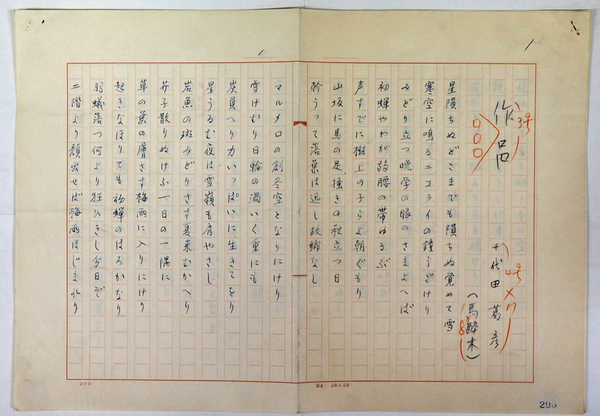 作品
千代田葛彦
(馬酔木)
星隕ちぬどこまでも隕ちぬ覚めて雪
寒空に鳴るニコライの鐘うごけり
みどり立つ晩学の眼のさまよへば
初蝉やわが弱腰の帯ゆるぶ
声すでに樹上の子らよ朝ぐもり
山坂に馬の足掻きの秋立つ日
幹うって落葉は迅し故郷なし
マルメロの創冬空となりにけり
雪けむり日輪の渦いく重にも
炭負へり力いっぱいに生きてをり
星うるむ夜は雪嶺も肩やさし
岩魚の斑みどりさす夏来むかへり
芥子散りぬけふ一日の一隅に
草の葉の膚さす梅雨に入りにけり
起きなほりても初蝉のはろかなり
羽蟻落つ何より狂ひきし今日ぞ
二階より顔出せば梅雨はじまれり